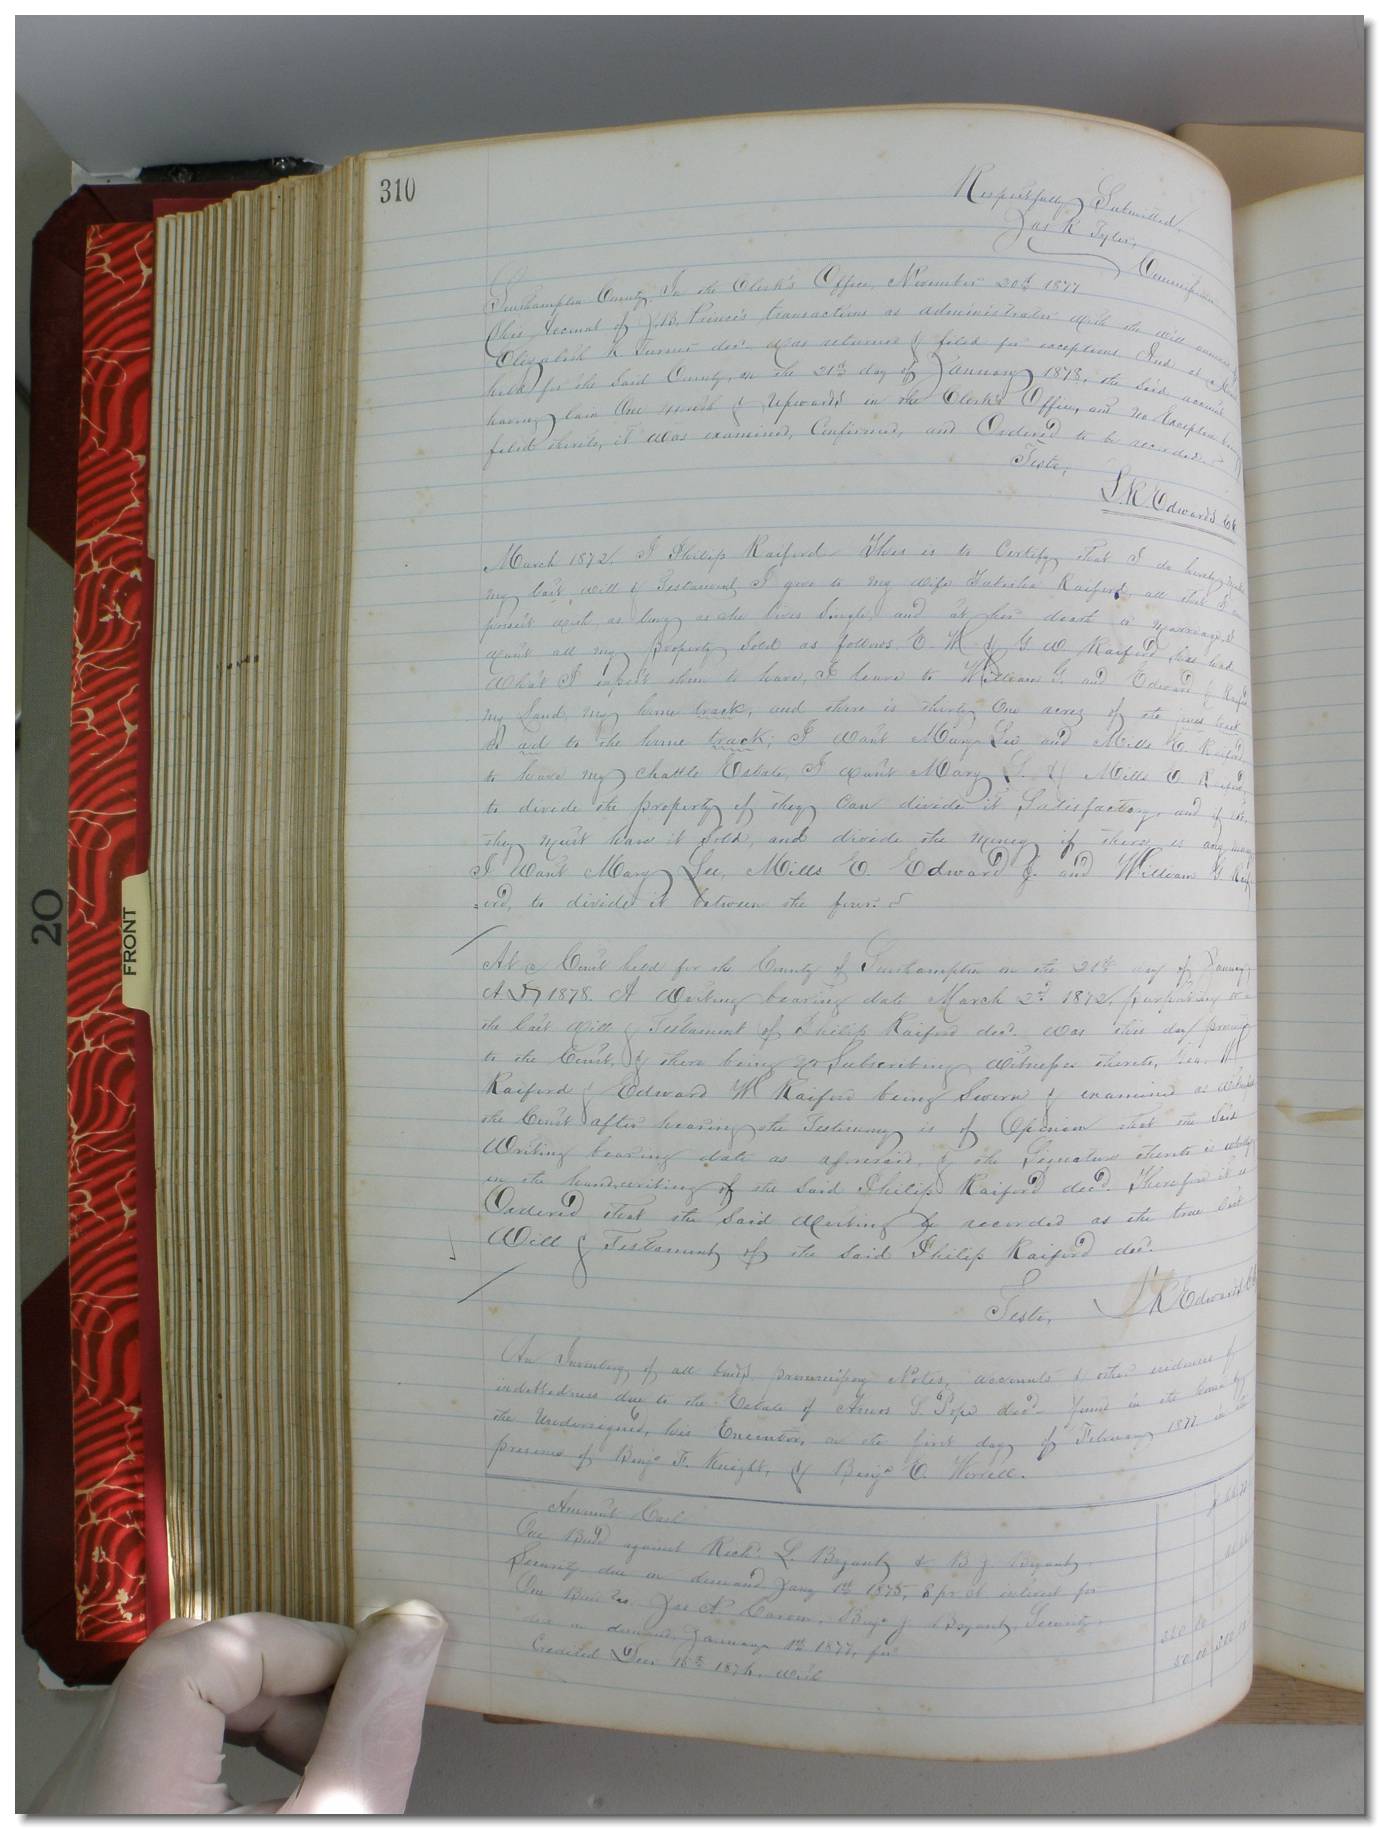 310
Respectfully Submitted,
Jas R Tyler,
Commissioner
Southampton County, In the Clerk's Office, November 20th 1877
This Account of J. B. Prince's transactions as administrator with the will annexed of
Elizabeth R Turner dec'd was returned & filed for exceptions And at a Court
held for the said County, on the 21st day of January 1878, the said account
having lain One month & Upwards in the Clerk's Office, and no Exception being
filed thereto, it was examined, Confirmed, and Ordered to be recorded.
Teste,
L. R. Edwards Clk
March 1872, I Philip Raiford This is to Certify that I do hereby make
my last will & Testament, I give to my wife Raiford, all that I am
possest with, as long as she lives Single, and at her death or marriage, I
want all my property Sold as follows, E. W. & G W Raiford has had
What I expect them to have, I leave to William G. and Edward J Raiford
my Land, my home track, and there is thirty One acres of the track
to ad to the home track; I want Mary Lee and Mills E. Raiford
to have my chattle Estate, I want Mary L. & Mills E. Raiford,
to divide the property if they Can divide it Satisfactory, and if not,
they must have it Sold, and divide the money if there is any money
I want Mary Lee, Mills E. Edward J. and William G Raif
=ord, to divide it between the four.
At a Court held for the County of Southampton on the 21st day of January,
A D 1878. A Writing bearing date March 2nd 1872, purporting to be
the last Will & Testament of Philip Raiford dec'd. was this day presented
to the Court, & there being no Subscribing Witnesses thereto, Geo. W
Raiford & Edward W Raiford being Sworn & examined as Witnesses
the Court after hearing the Testimony is of Opinion that the Said
Writing bearing date as aforesaid, & the Signature thereto is wholly
in the hand,writing of the Said Philip Raiford dec'd. Therefore it is
Ordered that the Said Writing be recorded as the true last
Will & Testament of the Said Philip Raiford dec'd.
Teste, L R Edwards Clk
An Inventory of all bonds, promissory Notes, accounts & other evidences of
indebtedness due to the Estate of Amos S. Pope dec'd found in the house by
the Undersigned, his Executor, on the first day of February 1877 in the
presence of Benja F. Knight, & Benja E. Worrell.
Amount Cash
One Bond against Richd. L. Bryant, & B J Bryant
Security due on demand Jany 1st 1875, 8 pr ct interest for
One Bond vs. Jas N. Benja J Bryant, Security
due on demand, January 1st 1877, for
Credited Decr 15th 1876. with
50 00
20
FRONT